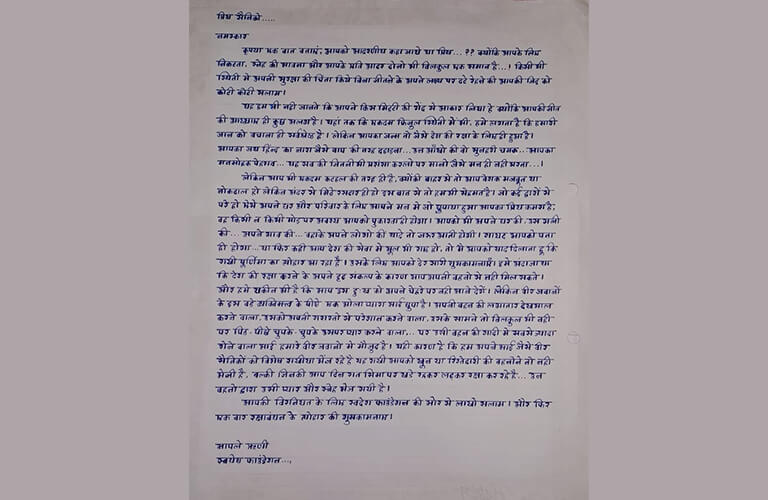 प्रिय सैनिको.....
नमस्कार
कृपया एक बात बताएं, आपको आदरणीय कहा जाये या प्रिय... ?? क्योंकि आपके लिए
निकटता, स्नेह की भावना और आपके प्रति आदर दोनो भी बिलकुल एक समान है...! किसी भी
स्थिती में अपनी सुरक्षा की चिंता किये बिना जीतने के अपने लक्ष्य पर डटे रेहने की आपकी जिद को
कोटी कोटी सलाम!
यह हम भी नही जानते कि आपने किस मिट्टी की गोद से आकार लिया है क्योंकि आपकी जीत
की अध्याय ही कुछ अलग है। यहां तक कि एकदम फिजुल स्थिती में भी, हमे लगता है कि हमारी
जान को बचाना ही सर्वश्रेष्ठ है। लेकिन आपका जन्म तो जैसे देश की रक्षा के लिए ही हुआ है।
आपका जय हिन्द का नारा जैसे बाघ की तरह दहाडना... उन आँखो की वो सुनहरी चमक... आपका
मनमोहक पेहराव... यह सब की जितनी भी प्रशंसा करलो पर मानो जैसे मन ही नही भरता...!
लेकिन आप भी एकदम कटहल की तरह ही है, क्योंकी बाहर से तो आप बेशक मजबूत या
नोकदार हो लेकिन अंदर से मिठे रसदार ही हो इस बात से तो हम भी सेहमत है। जो कई द्वारो से
परे हो ऐसे अपने घर और परिवार के लिए आपने मन मे जो छुपाया हुआ आपका प्रिय कमरा है,
वह किसी न किसी मोड पर अवश्य आपको पुकारता ही होगा। आपको भी अपने घर की.. उस गली
की... अपने गाव की... वहाके अपने लोगो की यादे तो जरूर आती होगी। शायद आपको पता
ही होगा... या फिर कही आप देश की सेवा में भूल भी गए हो, तो मै आपको याद दिलाना दू कि
राखी पूर्णिमा का त्योहार आ रहा है। उसके लिए आपको ढेर सारी शुभकामनाएँ। हमे अंदाजा था
कि देश की रक्षा करने के अपने दृढ संकल्प के कारण आप अपनी बहनो से नही मिल सकते।
और हमे यकीन भी है कि आप उस दुःख को अपने चेहरे पर नही आने देंगे। लेकिन वीर जवानों
के इस बडे व्यक्तिमत्व के पीछे एक भोला प्यारा भाई छुपा है। अपनी बहन की लगातार देखभाल
करने वाला, उसको अपनी शरारतो से परेशान करने वाला, उसके सामने तो बिलकुल भी नही
पर पिठ-पीछे चुपके-चुपके उसपर प्यार करने वाला,... पर उसी बहन की शादी में सबसे ज्यादा
रोने वाला भाई हमारे वीर जवानो में मौजुद है। यही कारण है कि हम अपने भाई जैसे वीर
सैनिकों को विशेष राखीया भेज रहे है यह राखी आपको खून या रिश्तेदारी की बहनोने तो नही
भेजी है, बल्की जिनकी आप दिन रात सिमा पर खडे रहकर लढकर रक्षा कर रहे है... उन
बहनो द्वारा उसी प्यार और स्नेह भेज गयी है।
आपकी के लिए स्वदेश फाउंडेशन की ओर से लाखो सलाम! और फिर
एक बार रक्षाबंधन के त्योहार की शुभकामनाएं।
आपले ऋणी
स्वदेश फाउंडेशन...,